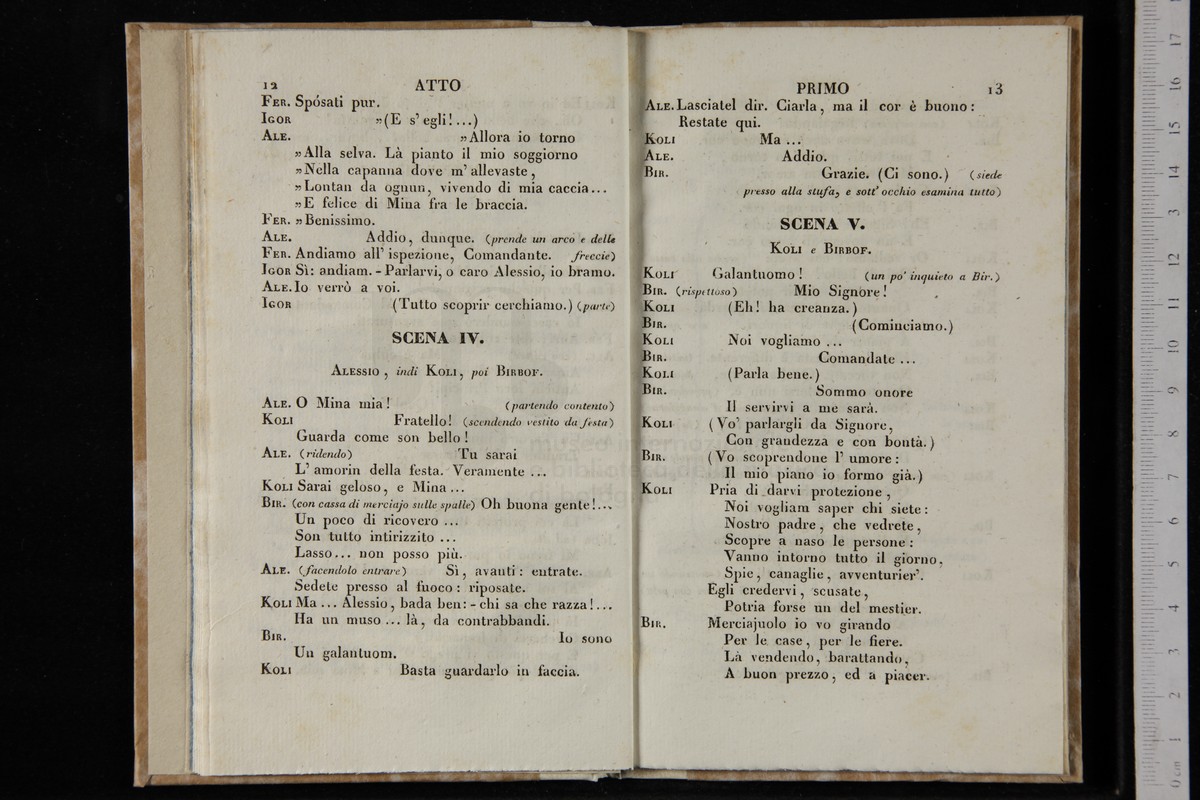 12 ATTO
FER. Spósati pur.
IGOR »(E s' egli!...)
ALE. »Allora io torno
»Alla selva. Là pianto il mio soggiorno
»Nella capanna dove m' allevaste,
»Lontan da ognun, vivendo di mia caccia...
»E felice di Mina fra le braccia.
FER. »Benissimo.
ALE. Addio, dunque. (prende un arco e delle
FER. Andiamo all' ispezione, Comandante. freccie)
IGOR Sì: andiam. - Parlarvi, o caro Alessio, io bramo.
ALE. Io verrò a voi.
IGOR (Tutto scoprir cerchiamo.) (parte)
SCENA IV.
ALESSIO, indi KOLI, poi BIRBOF.
ALE. O Mina mia! (partendo contento)
KOLI Fratello! (scendendo vestito da festa)
Guarda come son bello!
ALE. (ridendo) Tu sarai
L' amorin della festa. Veramente ...
KOLI Sarai geloso, e Mina...
BIR. (con cassa di merciajo sulle spalle) Oh buona gente!...
Un poco di ricovero ...
Son tutto intirizzito ...
Lasso... non posso più.
ALE. (facendolo entrare) Sì, avanti: entrate.
Sedete presso al fuoco: riposate.
KOLI Ma ... Alessio, bada ben: - chi sa che razza!...
Ha un muso ... là, da contrabbandi.
BIR. Io sono
Un galantuom.
KOLI Basta guardarlo in faccia.
PRIMO 13
ALE. Lasciatel dir. Ciarla, ma il cor è buono:
Restate qui.
KOLI Ma ...
ALE. Addio.
BIR. Grazie. (Ci sono.) (siede
presso alla stufa, e sott' occhio esamina tutto)
SCENA V.
KOLI e BIRBOF.
KOLI Galantuomo! (un po' inquieto a Bir.)
BIR. (rispettoso) Mio Signore!
KOLI (Eh! ha creanza.)
BIR. (Cominciamo.)
KOLI Noi vogliamo ...
BIR. Comandate ...
KOLI (Parla bene.)
BIR. Sommo onore
Il servirvi a me sarà.
KOLI (Vo' parlargli da Signore,
Con grandezza e con bontà.)
BIR. (Vo scoprendone l' umore:
Il mio piano io formo già.)
KOLI Pria di darvi protezione,
Noi vogliam saper chi siete:
Nostro padre, che vedrete,
Scopre a naso le persone:
Vanno intorno tutto il giorno,
Spie, canaglie, avventurier'.
Egli credervi, scusate,
Potria forse un del mestier.
BIR. Merciajuolo io vo girando
Per le case, per le fiere.
Là vendendo, barattando,
A buon prezzo, ed a piacer.